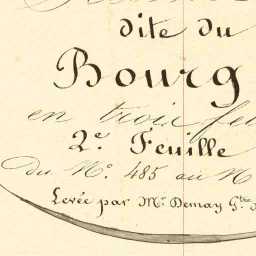 dite du
Bourg
en trois
2.e Feuille
du N.o 485 au N
Levée par M.r Demay G.tre